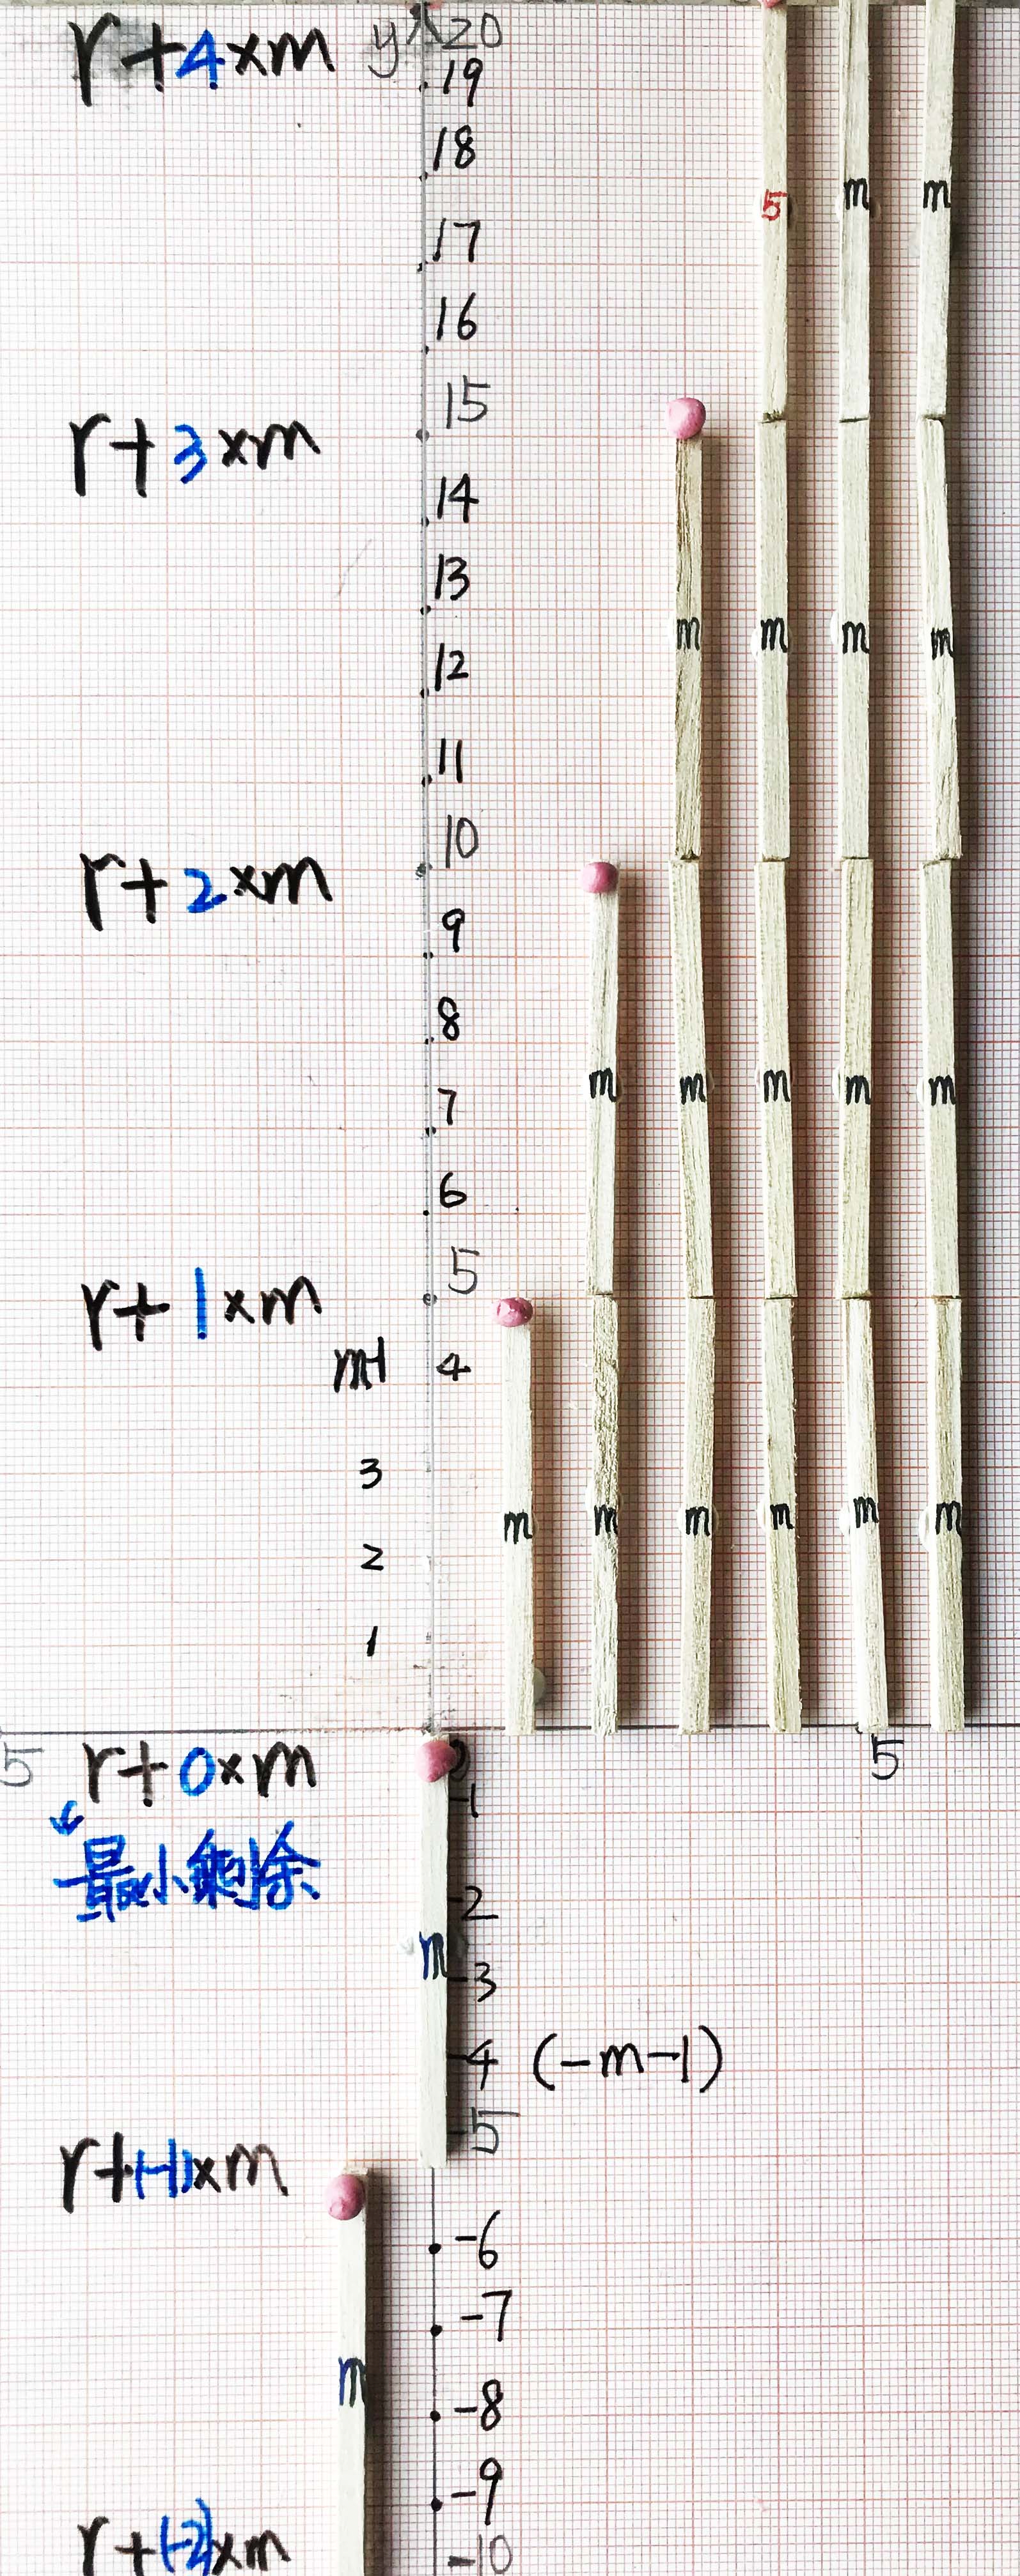 r+4×m y 20
19
18
5 m m
17
16
15
r+3×m
14
13
m m m m
12
11
10
r+2×m
9
8
m m m m m
7
6
5
r+1×m
m-1 4
3
m m m m m m
2
1
5 r+0×m 0 5
-1
最小剩余
-2
m
-3
-4 (-m-1)
-5
r+(-1)×m
-6
-7
m
-8
-9
r+(-2)×m
-10